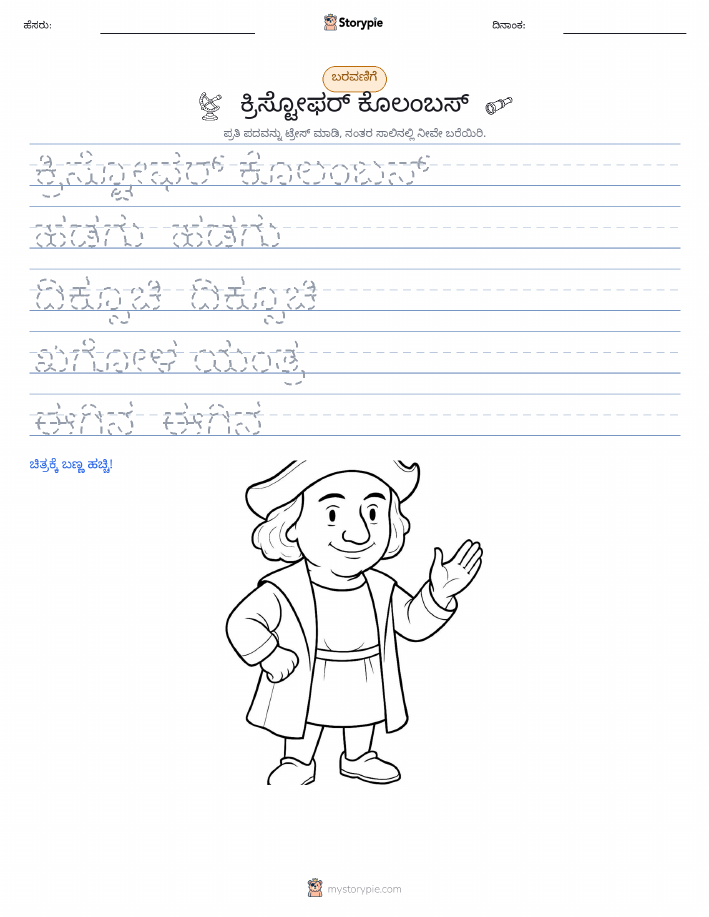 ಹೆಸರು:
Storypie
ದಿನಾಂಕ:
ಬರವಣಿಗೆ
ಕ್ರಿಸ್ಟೋಫರ್ ಕೊಲಂಬಸ್
ಪ್ರತಿ ಪದವನ್ನು ಟ್ರೇಸ್ ಮಾಡಿ, ನಂತರ ಸಾಲಿನಲ್ಲಿ ನೀವೇ ಬರೆಯಿರಿ.
ಕ್ರಿಸ್ಟೋಫರ್ ಕೊಲಂಬಸ್
ಹಡಗು ಹಡಗು
ದಿಕ್ಸೂಚಿ ದಿಕ್ಸೂಚಿ
ಖಗೋಳ ಯಂತ್ರ
ಈಗಿನ ಈಗಿನ
ಚಿತ್ರಕ್ಕೆ ಬಣ್ಣ ಹಚ್ಚಿ!
mystorypie.com